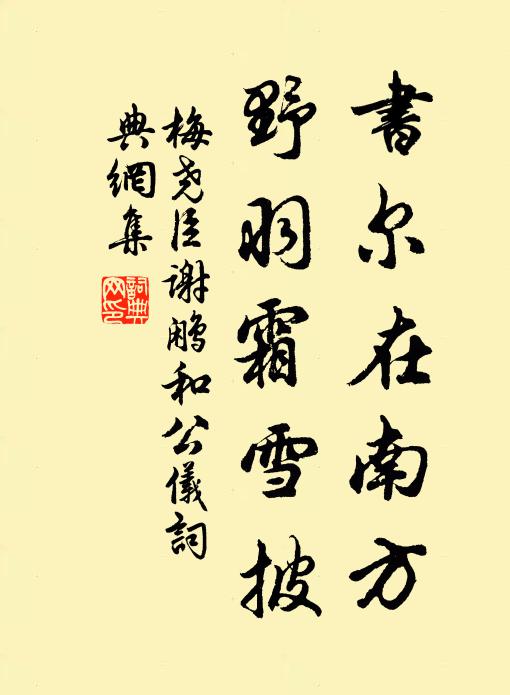 書尔在南方
野羽霜雪披
梅尧臣謝鵰和公儀詞
典網集
詞典
网印